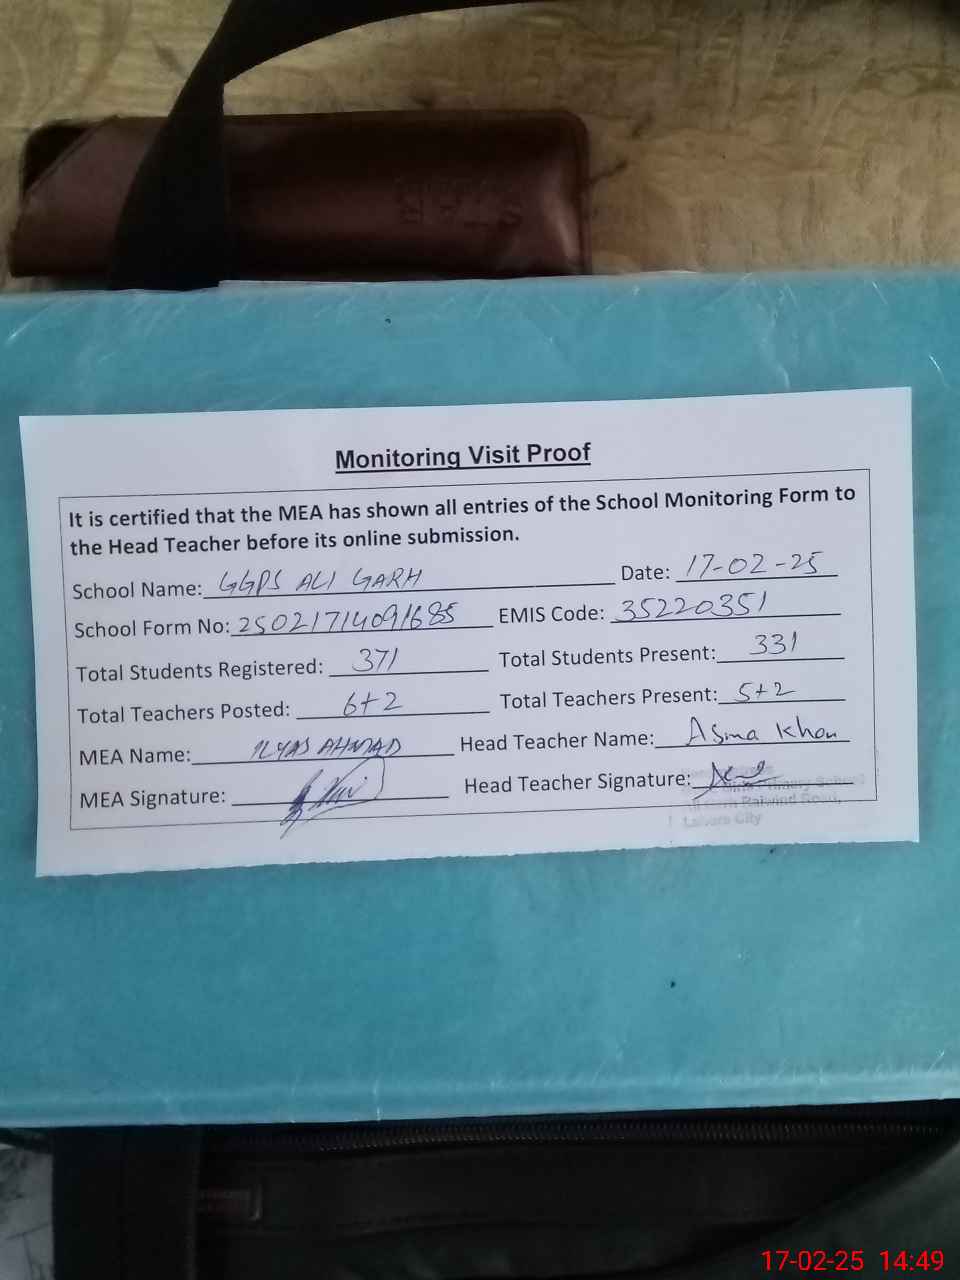 Monitoring Visit Proof
It is certified that the MEA has shown all entries of the School Monitoring Form to
the Head Teacher before its online submission.
School Name: GGPS ALI GARH Date: 17-02-25
School Form No: 25021714091685 EMIS Code: 35220351
Total Students Registered: 371 Total Students Present: 331
Total Teachers Posted: 6+2 Total Teachers Present: 5+2
MEA Name: ILYAS AHMAD Head Teacher Name: Asma Khan
MEA Signature: Head Teacher Signature:
Primary School
Garh Raiwind Road,
Lahore City
17-02-25 14:49